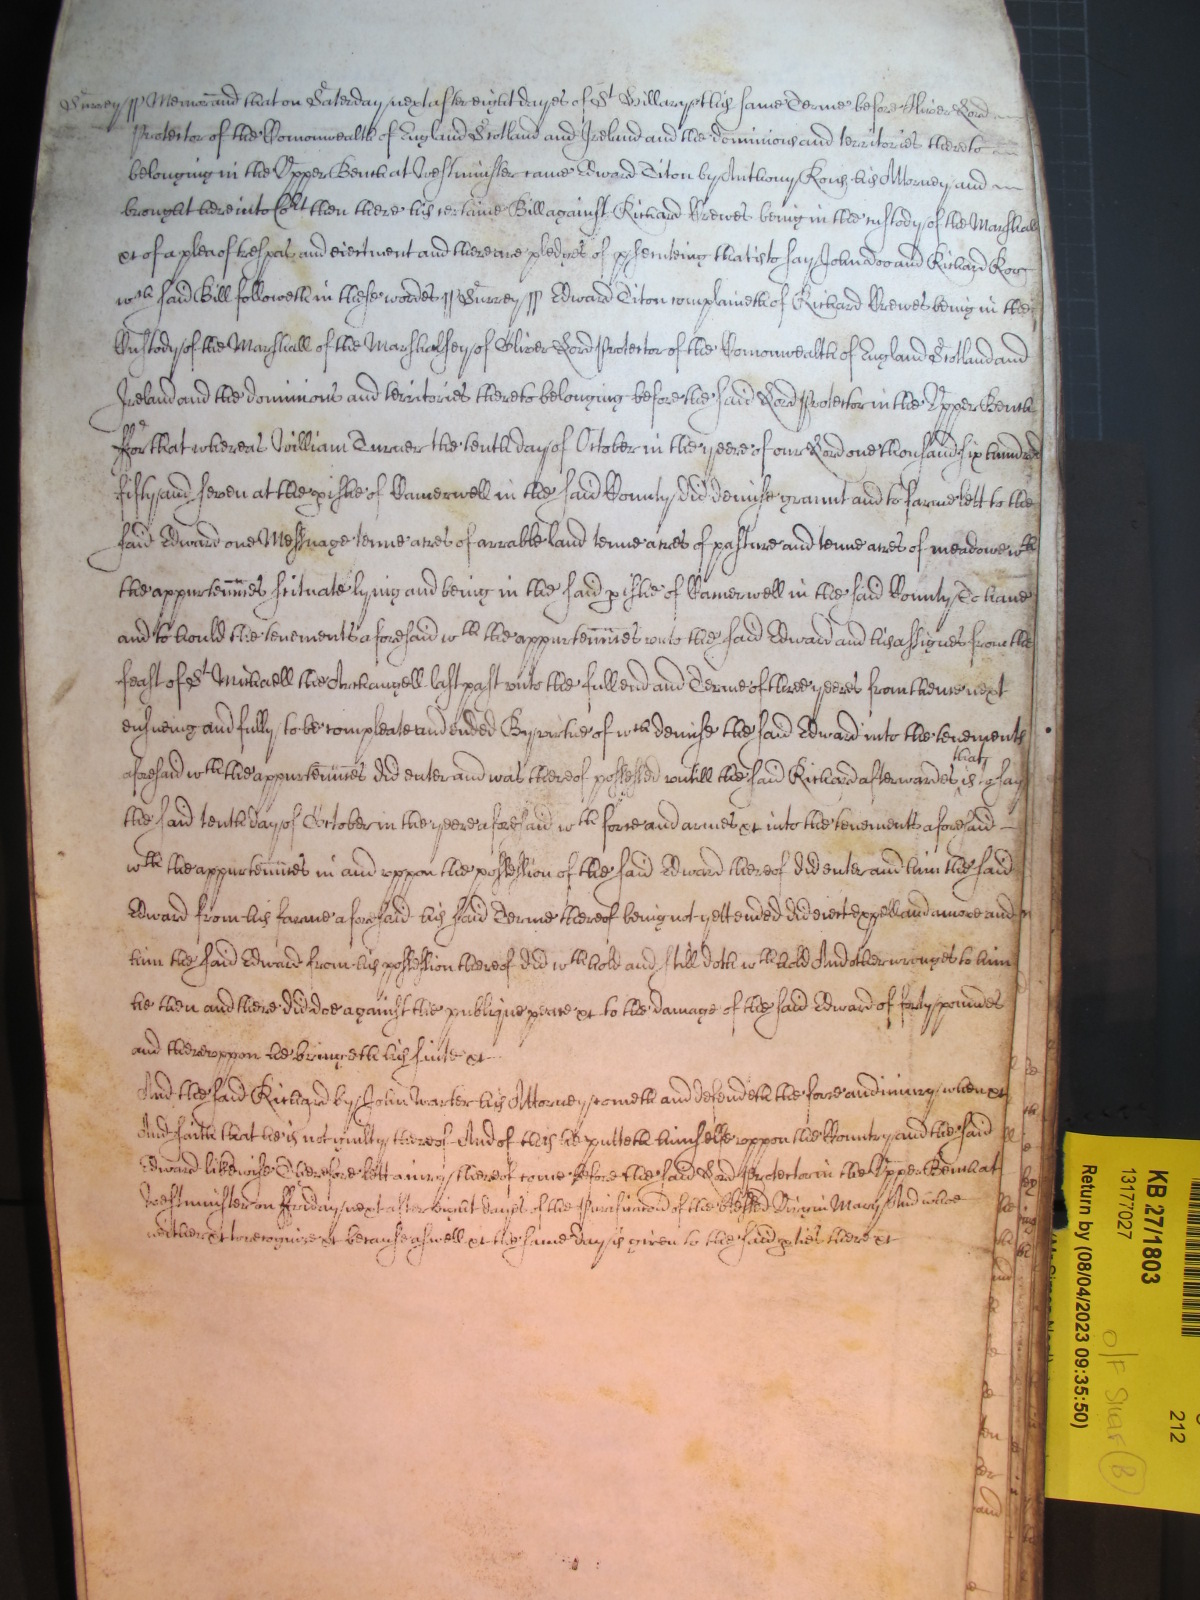 Surrey ss Memorand that on Saterday next after eight dayes of St Hillary this same Terme before Oliver Lord
Protector of the Comonwealth of England Scotland and Ireland and the dominions and territories thereto
belonging in the Upper Bench at Westminster came Edward Titon by Anthony his Attorney and
brought here into Cort then there his certaine Bill against Richard Brewes being in the custody of the Marshall
xc of a plea of trespas and eiectment and there are pledges of psecuteing that is to say John doo and Richard Roo
wch said Bill followeth in these wordes ss Surrey ss Edward Titon complaineth of Richard Brewes being in the
Custody of the Marshall of the Marshalsey of Oliver Lord Protector of the Comonwealth of England Scotland and
Ireland and the dominions and territories thereto belonging before the said Lord Protector in the Upper Bench
ffor that whereas William Turner the tenth day of October in the yeere of our Lord one thousand six hundred
fifty and seven at the pishe of Camerwell in the said County did demise graunt and to farme lett to the
said Edward one Messuage tenne acres of arrable land tenne acres of pasture and tenne acres of meadowe wth
the appurtennces scituate lying and being in the said pishe of Camerwell in the said County To have
and to hould the tenements aforesaid wth the appurtennces unto the said Edward and his assignes from the
feast of St Michaell the Archangell last past unto the full end and Terme of three yeeres from thence next
ensueing and fully to be compleate and ended By virtue of wch demise the said Edward into the tenements
aforesaid wth the appurtennces did enter and was thereof possessed untill the said Richard afterwardes that is to say
the said tenth day of October in the yeere aforesaid wth force and armes xc into the tenements aforesaid
wth the appurtennces in and uppon the possession of the said Edward thereof did enter and him the said
Edward from his farme aforesaid his said Terme thereof being not yett ended did eiect expell and amove and
him the said Edward from his possession thereof did wthhold and still doth wthhold And other wronges to him
he then and there did doe against the publique peace xc to the damage of the said Edward of forty poundes
and thereuppon he bringeth his suite xc
And the said Richard by John Warter his Attorney cometh and defendeth the force and iniury when xc
And saith that he is not guilty thereof And of this he putteth himselfe uppon the Country and the said
Edward likewise Therefore lett a iury thereof come before the said Lord Protector in the Upper Bench at
Westminster on ffriday next after eight dayes of the Purificacon of the blessed Virgin Mary And whoe
neither xc to recognize xc because aswell xc the same day is given to the said pties there xc
KB 27/1803
13177027
Return by (08/04/2023 09:35:50)
212